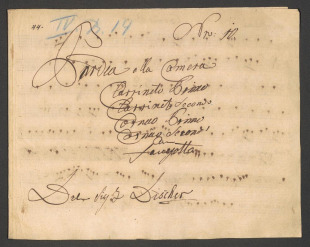 44.
IV b 19
Nro: 12.
Partia alla Camera
Clarinetto Primo
Clarinetto Secondo
Cornuo Primo
Cornuo Secondo
Fangotto
Del Sig: Discher